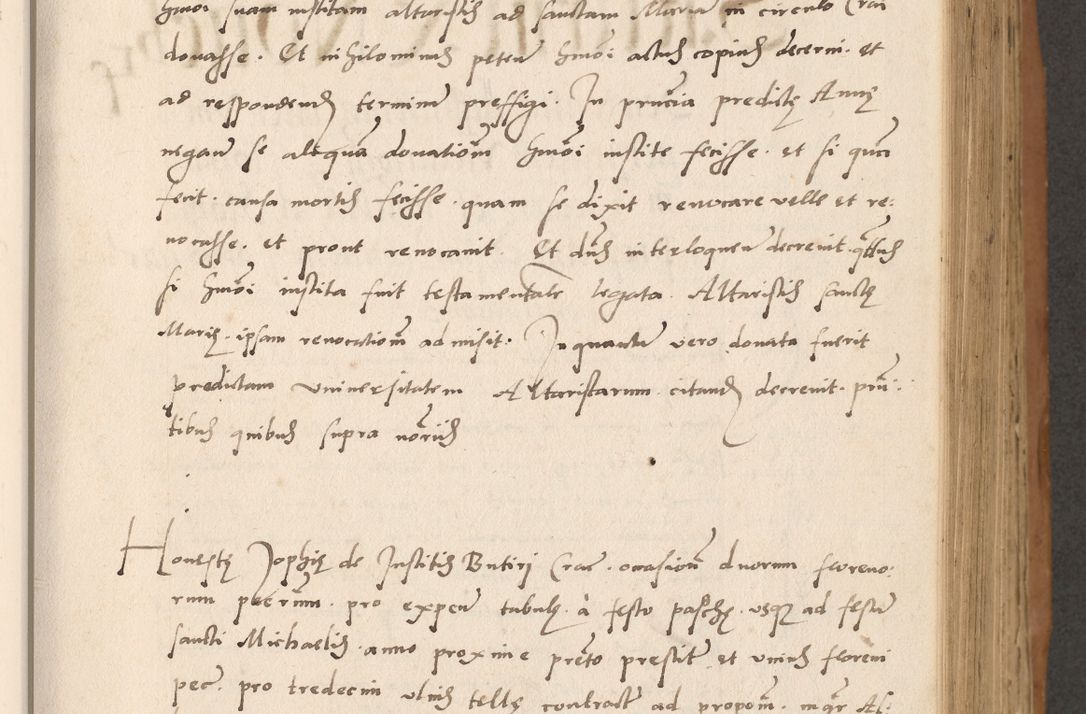 hmoi suam institam altaristis ad sanctam Mariam in circulo Crac
donasse. Et nihilominus peten hmoi actus copius decerni. et
ad respondend terminum preffigi. In pruncia predicte Anne
negan se aliquam donationem hmoi institE fecisse. et si quam
fecit. causa mortis fecisse. quam se dixit renocare velle et re:
nocasse. et prout renocauit. Et dns interloquen decreuit. qtus
si hmoi instita fuit testamentale legata. Altaristis sancte
Marie. ipsam renocationem admisit. Inquantum vero donata fuerit
predictam vniuersitatem Altaristarum. citand decreuit. prn:
tibus quibus supra notariis
Honeste Sophie de Institis Butiri Crac. occasion duorum floreno:
rum pecnium. pro expen tabule. à festo pasche. vsque ad festum
sancti Michaelis. anno proxime prerito prestit et vnius floreni
pec. pro tredecim vlnis telle contract ad propom. mgr Al: